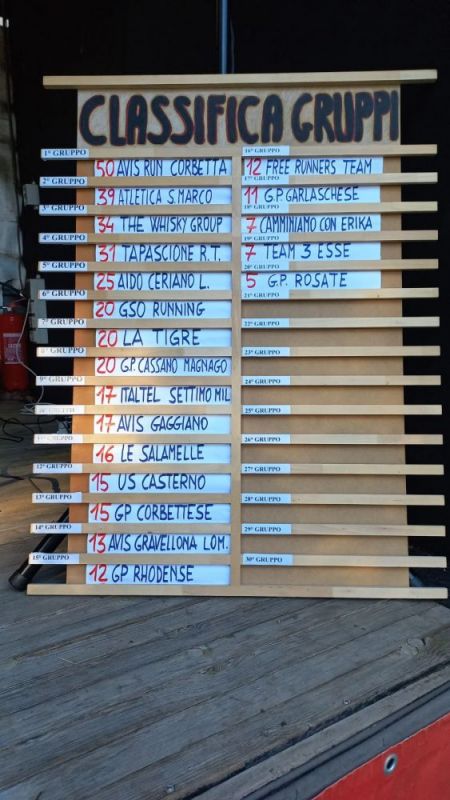 CLASSIFICA GRUPPI
1° GRUPPO
50 AVIS RUN CORBETTA
2° GRUPPO
39 ATLETICA S.MARCO
3° GRUPPO
34 THE WHISKY GROUP
4° GRUPPO
31 TAPASCIONE R.T.
5° GRUPPO
25 AIDO CERIANO L.
6° GRUPPO
20 GSO RUNNING
7° GRUPPO
20 LA TIGRE
8° GRUPPO
20 G.P. CASSANO MAGNAGO
9° GRUPPO
17 ITALTEL SETTIMO MIL
17 AVIS GAGGIANO
16 LE SALAMELLE
12° GRUPPO
15 US CASTERNO
13° GRUPPO
15 GP CORBETTESE
14° GRUPPO
13 AVIS GRAVELLONA LOM.
15° GRUPPO
12 GP RHODENSE
16° GRUPPO
12 FREE RUNNERS TEAM
17° GRUPPO
11 G.P. GARLASCHESE
18° GRUPPO
7 CAMMINIAMO CON ERIKA
19° GRUPPO
7 TEAM 3 ESSE
20° GRUPPO
5 G.P. ROSATE
21° GRUPPO
22° GRUPPO
23° GRUPPO
24° GRUPPO
25° GRUPPO
26° GRUPPO
27° GRUPPO
28° GRUPPO
29° GRUPPO
30° GRUPPO